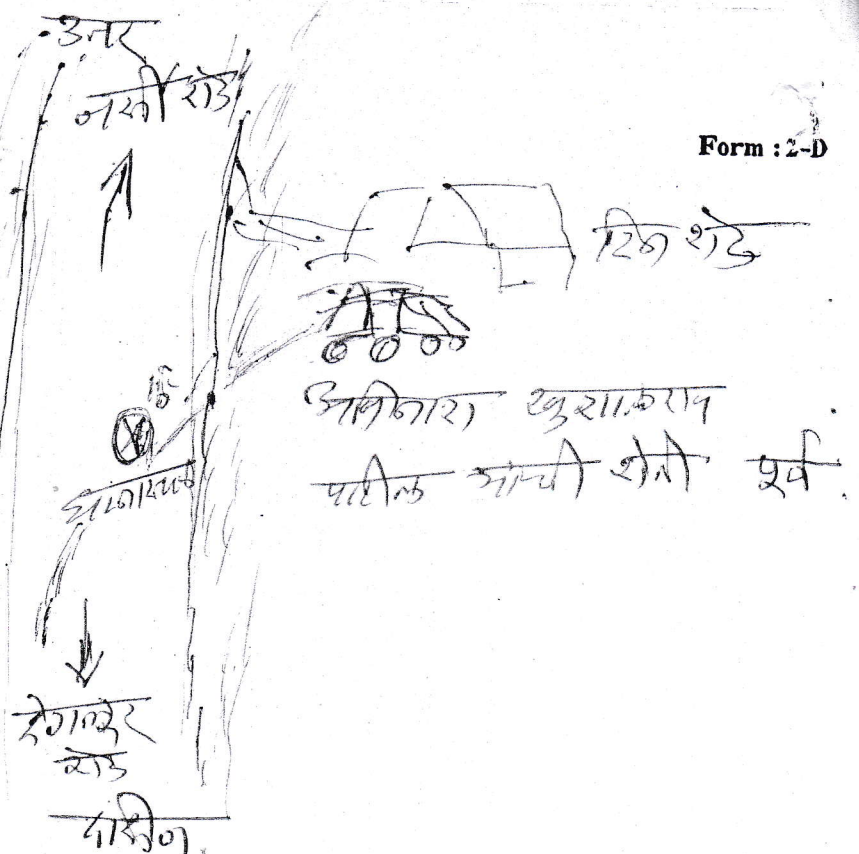 उत्तर
नर्सी रोड
Form : 2-D
टिन शेड
अविनाश खुशालराव
पाटील यांची शेती पूर्व
घटनास्थळ
देगलूर
रोड
दक्षिण